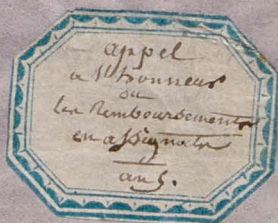 appel
à l'honneur
ou
les Remboursements
en assignats
an 5.